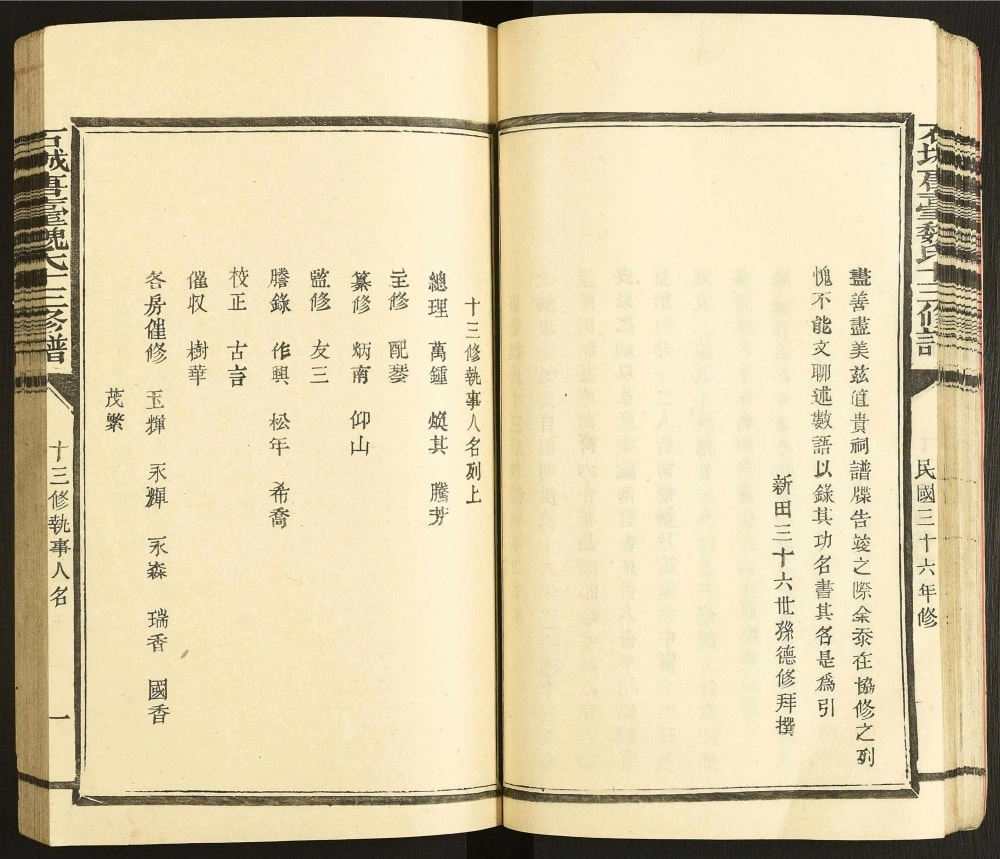 石城唐臺魏氏十三修譜
民國三十六年修
盡善盡美茲值貴祠譜牒告竣之際余忝在協修之列
愧不能文聊述數語以錄其功名書其名是爲引
新田三十六世孫德修拜撰
十三修執事人名列上
總理 萬鍾 煥其 騰芳
主修 配琴
纂修 炳南 仰山
監修 友三
謄錄 作興 松年 希喬
校正 古言
催収 樹華
各房催修 玉輝 永輝 永森 瑞香 國香
茂繁
石城唐臺魏氏十三修譜
十三修執事人名
一